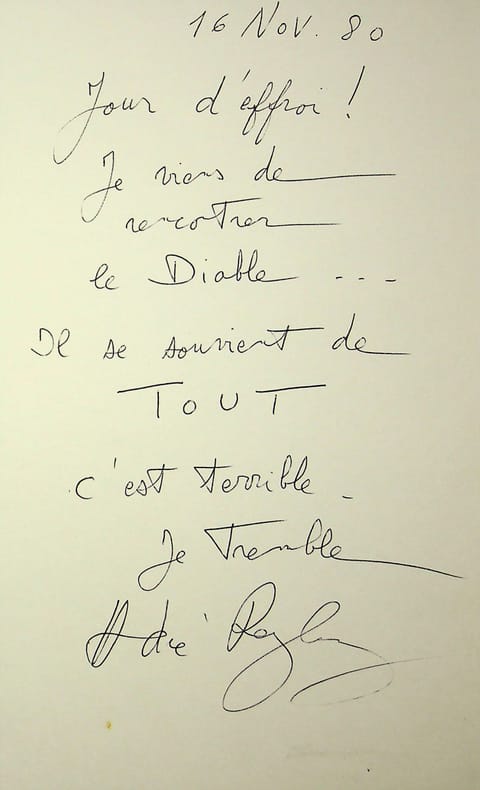 16 Nov. 80
Jour d'effroi !
Je viens de
rencontrer
le Diable ---
Il se souvient de
TOUT
c'est terrible -
Je Tremble